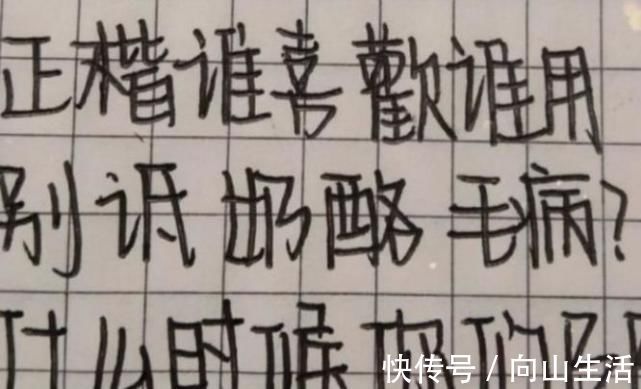 正楷谁喜歡谁用
别诋奶酪毛病?
什么时候
快传号 / 向山生活